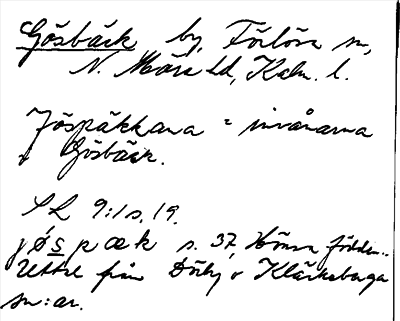 Gösbäck by, Förlösa sn,
N. Möre hd, Kalm. l.
Jöspäkkana = invånarna
i Gösbäck.
SL 9:1 s. 19.
jøspæk s. 37, födda..
från Dörby o Kläckeberga
sn:ar.